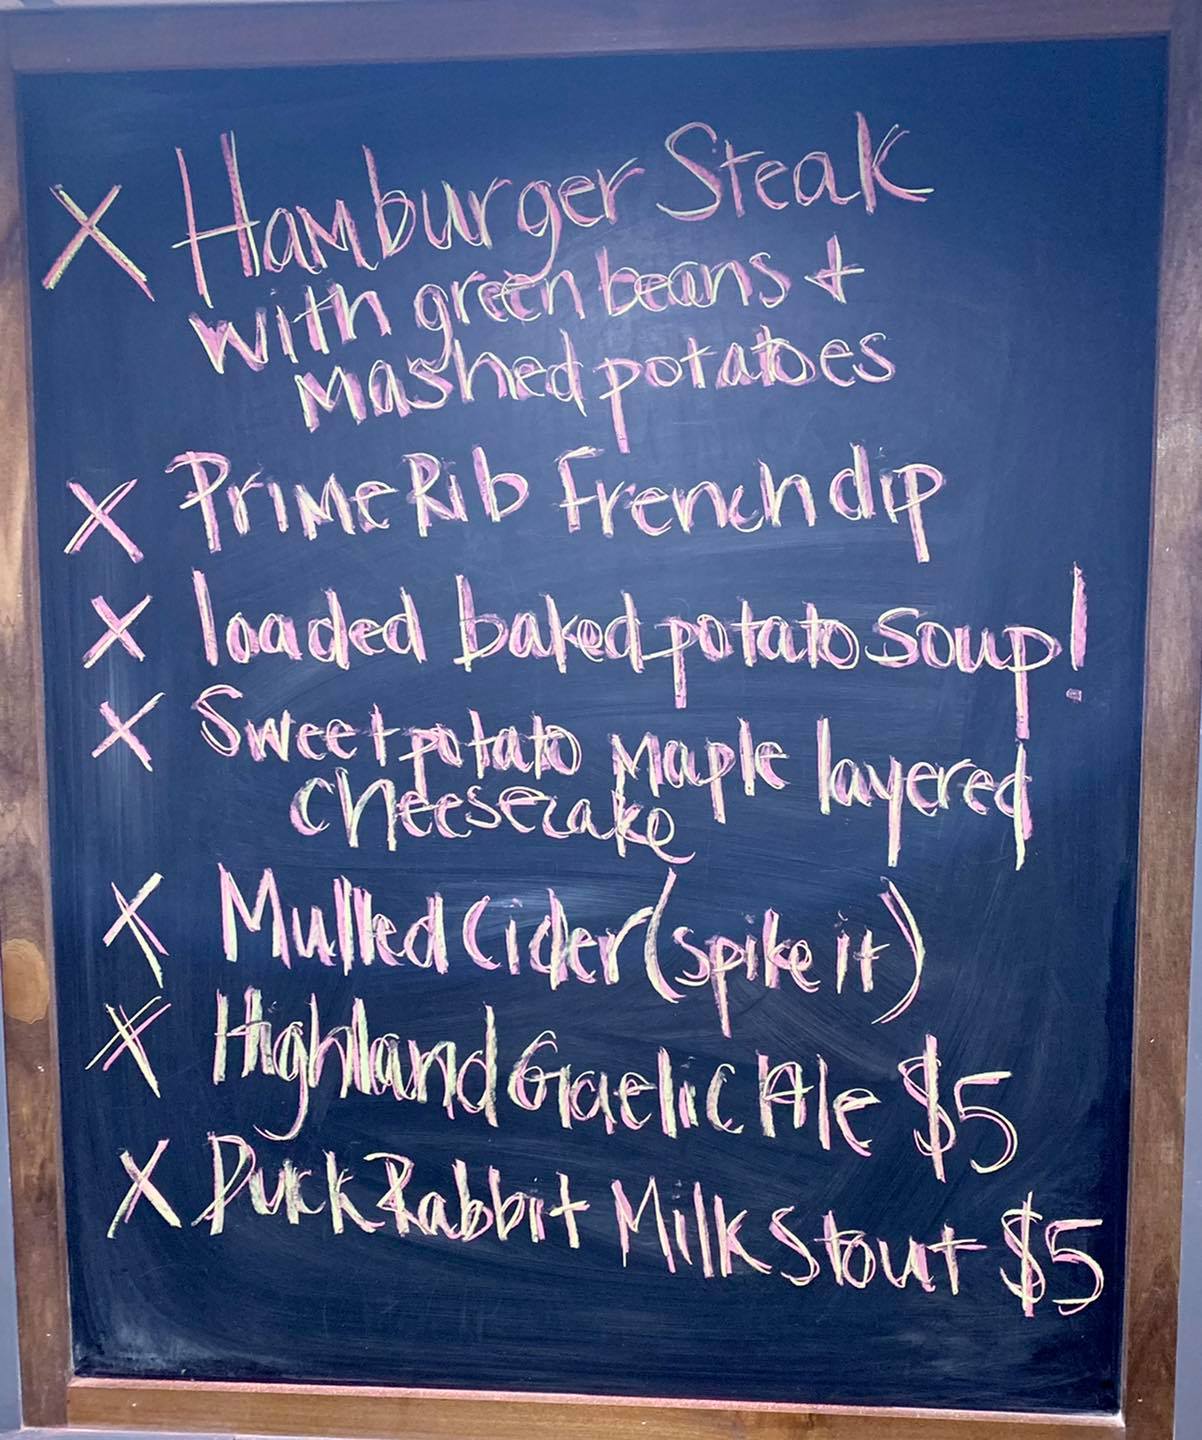 X Hamburger Steak
with green beans +
mashed potatoes
X Prime Rib French dip
X loaded baked potato soup!
X Sweet potato Maple layered
cheesecake
X Mulled Cider (spike it)
X Highland Gaelic Ale $5
X Duck Rabbit Milk Stout $5